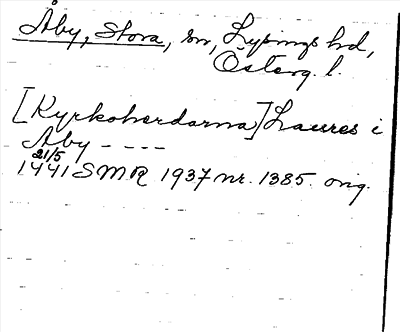 Åby, Stora, sn, Lysings hd,
Österg. l.
[Kyrkoherdarna] Laures i
Åby - - - -
21/5
1441 SMR 1937 nr. 1385. orig.